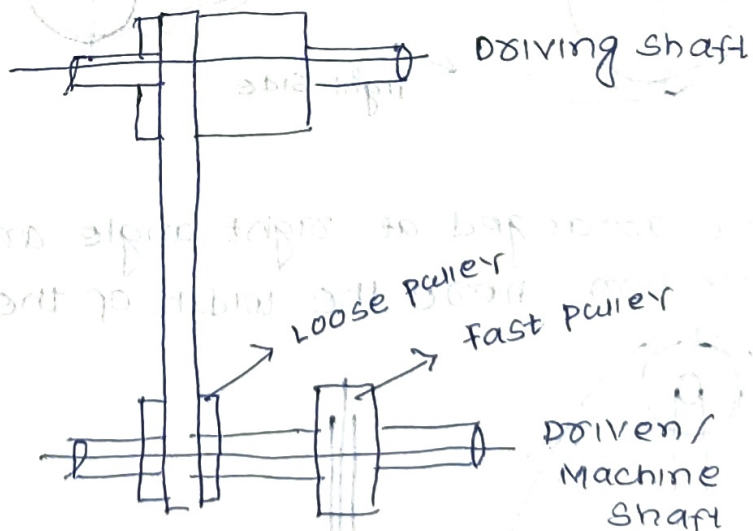 Driving shaft
Loose pulley
Fast pulley
Driven/
Machine
Shaft